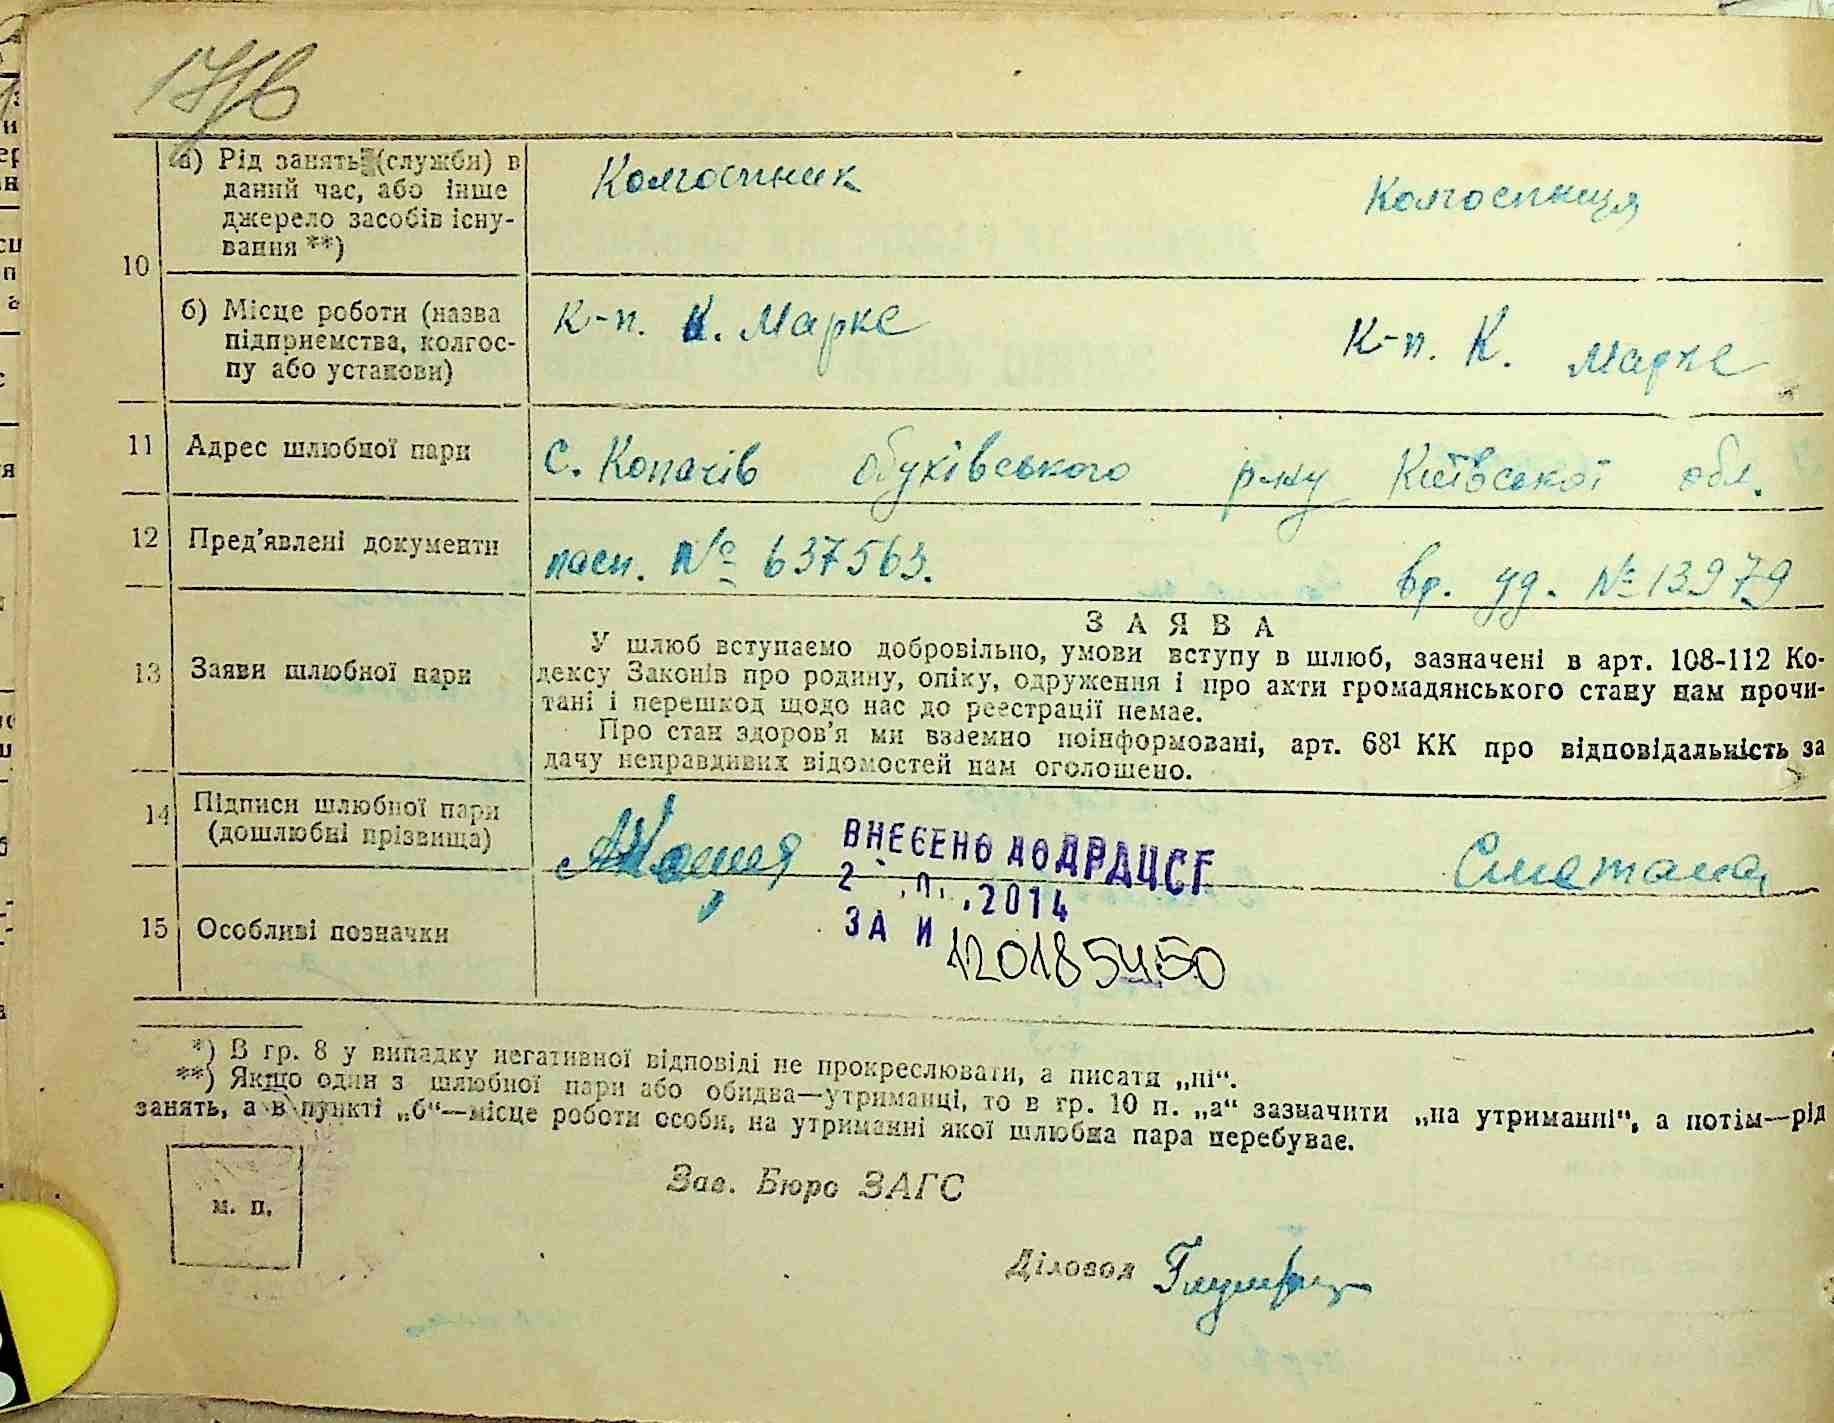 10
а) Рід занять (служби) в
даний час, або інше
джерело засобів існу-
вання **)
Колгоспник
Колгоспниця
б) Місце роботи (назва
підприємства, колгос-
пу або установи)
К-п. К. Маркс
К-п. К. Маркс
11 Адрес шлюбної пари
С. Копачів Обухівського р-ну Київської обл.
12 Пред'явлені документи
пасп. № 637563.
вр. уд. № 13979
13 Заяви шлюбної пари
ЗАЯВА
У шлюб вступаємо добровільно, умови вступу в шлюб, зазначені в арт. 108-112 Ко-
дексу Законів про родину, опіку, одруження і про акти громадянського стану нам прочи-
тані і перешкод щодо нас до реєстрації немає.
Про стан здоров'я ми взаємно поінформовані, арт. 68¹ КК про відповідальність за
дачу неправдивих відомостей нам оголошено.
14 Підписи шлюбної пари
(дошлюбні прізвища)
Сметана
ВНЕСЕНО ДО ДРАЦСГ
2014
ЗА И 120185450
15 Особливі позначки
*) В гр. 8 у випадку негативної відповіді не прокреслювати, а писати „ні“.
**) Якщо один з шлюбної пари або обидва—утриманці, то в гр. 10 п. „а“ зазначити „на утриманні“, а потім—рід
занять, а в пункті „б“—місце роботи особи, на утриманні якої шлюбна пара перебуває.
м. п.
Зав. Бюро ЗАГС
Діловод